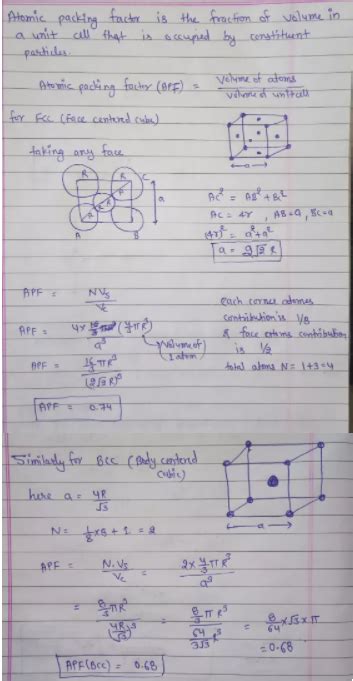 Atomic packing factor is the fraction of volume in
a unit cell that is occupied by constituent
particles.
Atomic packing factor (APF) = Volume of atoms / volume of unit cell
for FCC (Face centered cube)
a
taking any face
R R C
R R a
R
A B
AC² = AB² + BC²
AC = 4r, AB = a, BC = a
(4r)² = a² + a²
a = 2√2 R
APF = NVs / Vc
APF = 4 x (4/3 πR³) / a³
Volume of
1 atom
APF = 16/3 πR³ / (2√2 R)³
APF = 0.74
each corner atoms
contribution is 1/8
& face atoms contribution
is 1/2
total atoms N = 1+3=4
Similarly for BCC (Body centered
cubic)
here a = 4R / √3
a
N = 1/8 x 8 + 1 = 2
APF = N.Vs / Vc = 2 x 4/3 πR³ / a³
= 8/3 πR³ / (4R/√3)³ = 8/3 πR³ / 64/3√3 R³ = 8/64 x √3 x π
= 0.68
APF(BCC) = 0.68